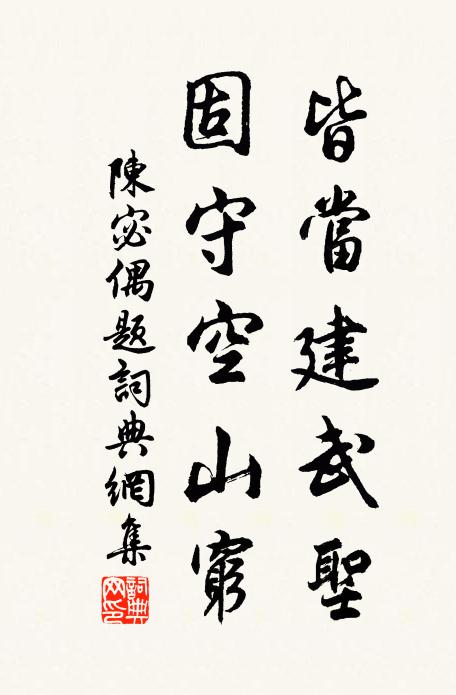 皆當建武聖
固守空山窮
陳宓偶題詞典網集
詞典網印